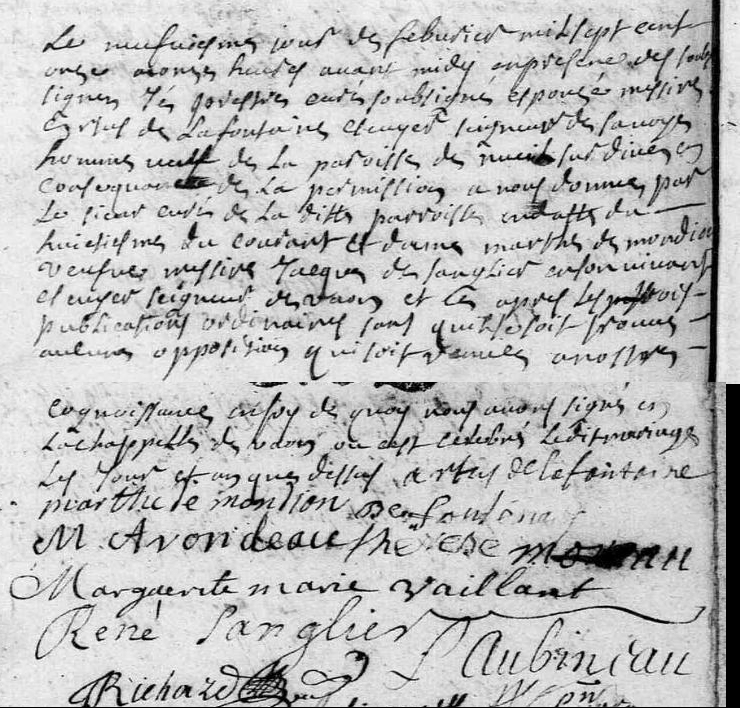 Le neufviesme jour de febvrier mil sept cent
onze a onze heures avant midy en presence des soub
signes Jé prestre curé soubsigné espousé messire
Artus de Lafontaine escuyer seigneur de
homme veuf de La paroisse de nueil sur dive en
consequance de La permission a nous donnee par
Le sieur curé de La ditte parroisse en datte du
huictiesme du courant et dame marthe de mondion
veufve messire Jacques de sanglier en son vivant
escuyer seigneur de vaon et Ce apres Les trois
publications ordinaires sans qu'il se soit trouvé
aulcune opposition qui soit venue a nostre
cognoissance en foy de quoy nous avons signé en
La chappelle de vaon ou est celebré Ledit mariage
Les Jour et an que dessus artus de lafontaine
marthe de mondion
M Avondeau therese
Marguerite marie vaillant
René Sanglier
Aubineau
Richard